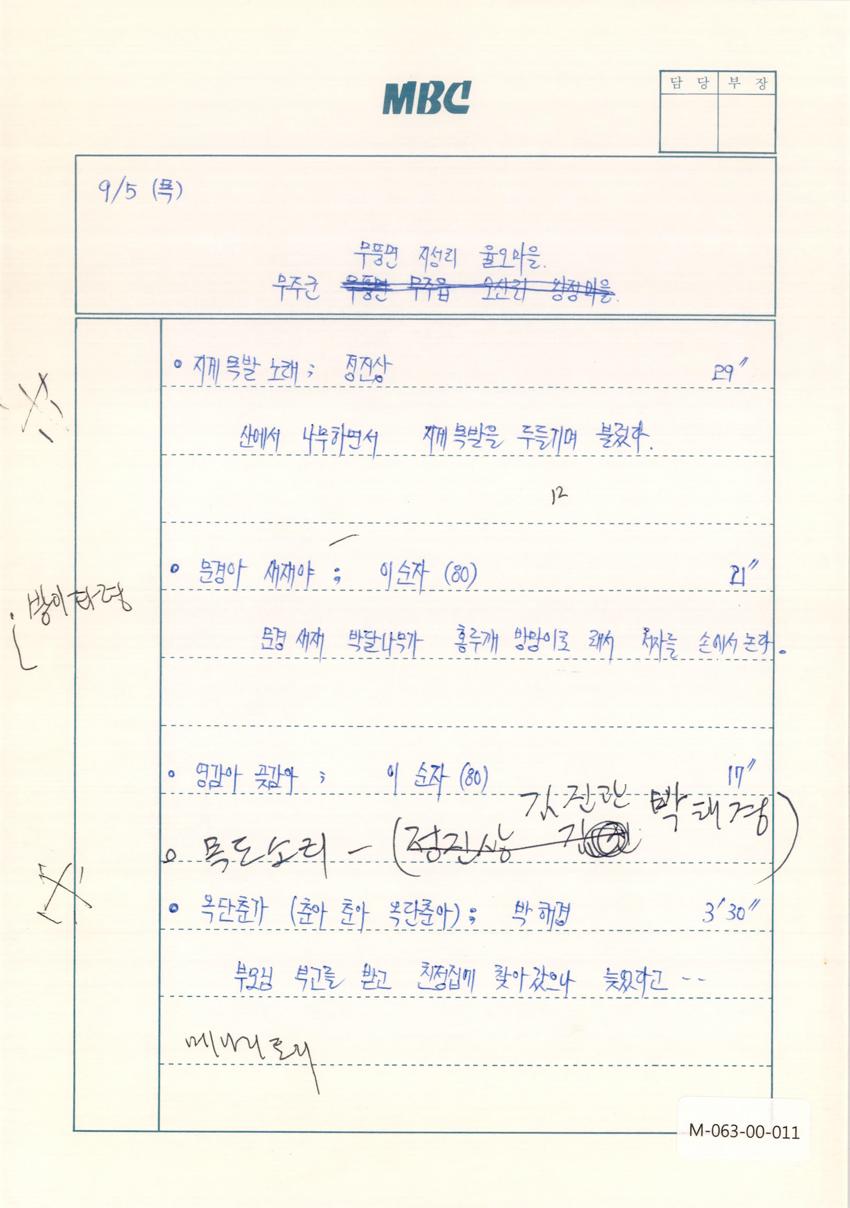 MBC
담 당 부 장
9/5 (목)
무풍면 지성리 율오마을.
무주군 무풍면 무주읍 오산리 왕정마을.
∘ 지게목발 노래; 정진상 29″
산에서 나무하면서 지게목발을 두들기며 불렀다.
12
∘ 문경아 새재야 ; 이순자 (80) 21″
방아타령
문경 새재 박달나무가 홍두깨 방망이로 래서 처자들 손에서 논다.
∘ 영감아 곶감아 ; 이 순자 (80) 17″
김진관 박태경)
∘ 목도소리 - (정진상
∘ 옥단춘가 (춘아 춘아 옥단춘아); 박해경 3′30″
부모님 부고를 받고 친정집에 찾아갔으나 늦었다고 --
메나리토리
M-063-00-011